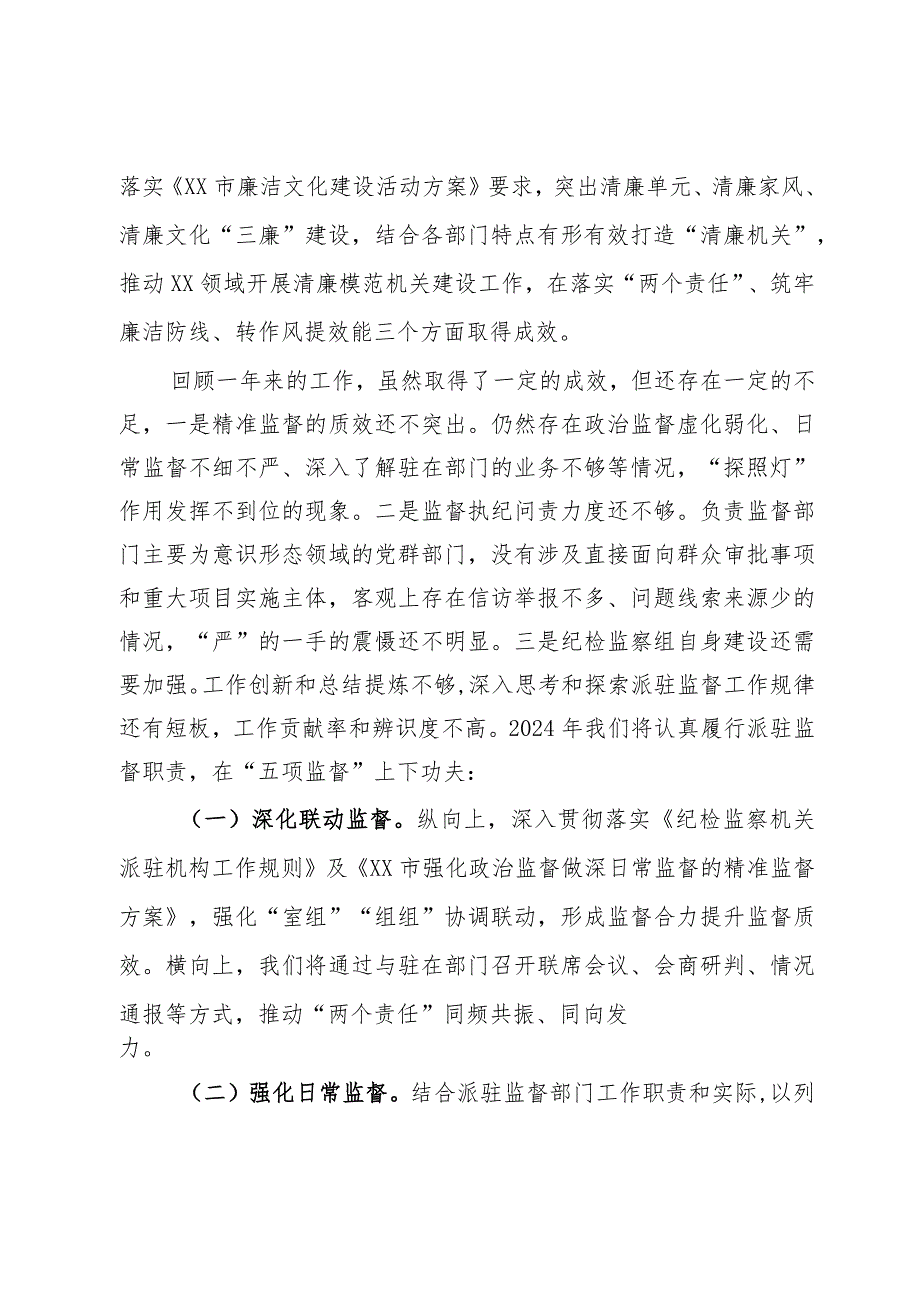 落实《XX 市廉洁文化建设活动方案》要求，突出清廉单元、清廉家风、
清廉文化“三廉”建设，结合各部门特点有形有效打造“清廉机关”，
推动XX 领域开展清廉模范机关建设工作，在落实“两个责任”、筑牢
廉洁防线、转作风提效能三个方面取得成效。
回顾一年来的工作，虽然取得了一定的成效，但还存在一定的不
足，一是精准监督的质效还不突出。仍然存在政治监督虚化弱化、日
常监督不细不严、深入了解驻在部门的业务不够等情况，“探照灯”
作用发挥不到位的现象。二是监督执纪问责力度还不够。负责监督部
门主要为意识形态领域的党群部门，没有涉及直接面向群众审批事项
和重大项目实施主体，客观上存在信访举报不多、问题线索来源少的
情况，“严”的一手的震慑还不明显。三是纪检监察组自身建设还需
要加强。工作创新和总结提炼不够,深入思考和探索派驻监督工作规律
还有短板，工作贡献率和辨识度不高。2024 年我们将认真履行派驻监
督职责，在“五项监督”上下功夫：
（一）深化联动监督。纵向上，深入贯彻落实《纪检监察机关
派驻机构工作规则》及《XX 市强化政治监督做深日常监督的精准监督
方案》，强化“室组”“组组”协调联动，形成监督合力提升监督质
效。横向上，我们将通过与驻在部门召开联席会议、会商研判、情况
通报等方式，推动“两个责任”同频共振、同向发
力。
（二）强化日常监督。结合派驻监督部门工作职责和实际,以列